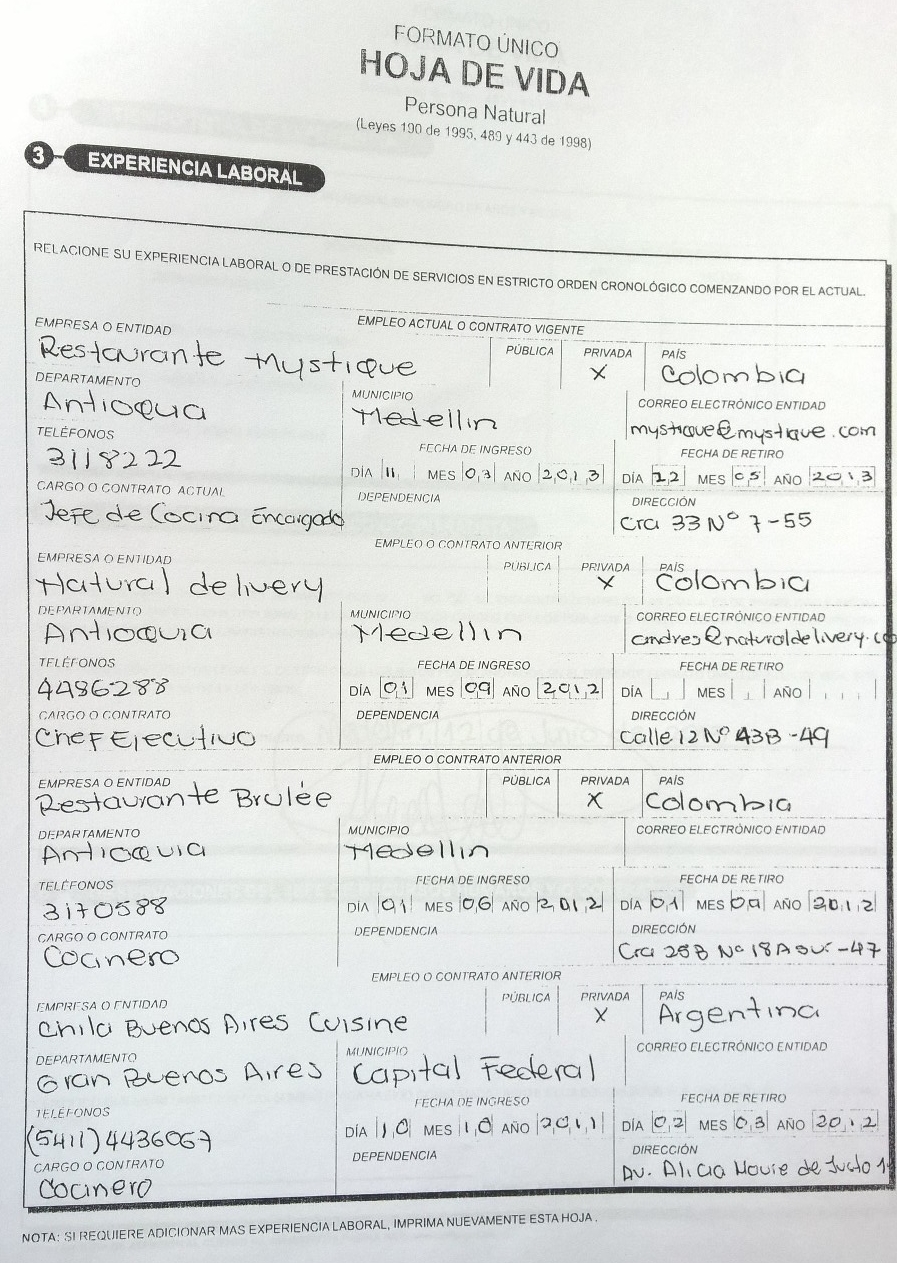 FORMATO ÚNICO
HOJA DE VIDA
Persona Natural
(Leyes 190 de 1995, 489 y 443 de 1998)
3 EXPERIENCIA LABORAL
RELACIONE SU EXPERIENCIA LABORAL O DE PRESTACIÓN DE SERVICIOS EN ESTRICTO ORDEN CRONOLÓGICO COMENZANDO POR EL ACTUAL.
EMPLEO ACTUAL O CONTRATO VIGENTE
EMPRESA O ENTIDAD PÚBLICA PRIVADA PAÍS
Restaurante Mystique X Colombia
DEPARTAMENTO MUNICIPIO CORREO ELECTRÓNICO ENTIDAD
Antioqua Medellin mystique@mystique.com
TELÉFONOS FECHA DE INGRESO FECHA DE RETIRO
3118222 DÍA 11 MES 03 AÑO 2013 DÍA 22 MES 05 AÑO 2013
CARGO O CONTRATO ACTUAL DEPENDENCIA DIRECCIÓN
Jefe de Cocina Encargado Cra 33 Nº 7-55
EMPLEO O CONTRATO ANTERIOR
EMPRESA O ENTIDAD PÚBLICA PRIVADA PAÍS
Natural delivery X Colombia
DEPARTAMENTO MUNICIPIO CORREO ELECTRÓNICO ENTIDAD
Antioquia Medellin andres@naturaldelivery.co
TELÉFONOS FECHA DE INGRESO FECHA DE RETIRO
4486288 DÍA 01 MES 09 AÑO 2012 DÍA MES AÑO
CARGO O CONTRATO DEPENDENCIA DIRECCIÓN
Chef Ejecutivo Calle 12 Nº 43B-49
EMPLEO O CONTRATO ANTERIOR
EMPRESA O ENTIDAD PÚBLICA PRIVADA PAÍS
Restaurante Brulée X Colombia
DEPARTAMENTO MUNICIPIO CORREO ELECTRÓNICO ENTIDAD
Antioquia Medellin
TELÉFONOS FECHA DE INGRESO FECHA DE RETIRO
3170588 DÍA 01 MES 06 AÑO 2012 DÍA 01 MES 09 AÑO 2012
CARGO O CONTRATO DEPENDENCIA DIRECCIÓN
Cocinero Cra 25B Nº 18A sur-47
EMPLEO O CONTRATO ANTERIOR
EMPRESA O ENTIDAD PÚBLICA PRIVADA PAÍS
Chila Buenos Aires Cuisine X Argentina
DEPARTAMENTO MUNICIPIO CORREO ELECTRÓNICO ENTIDAD
Gran Buenos Aires Capital Federal
TELÉFONOS FECHA DE INGRESO FECHA DE RETIRO
(5411)4436067 DÍA 10 MES 10 AÑO 2011 DÍA 02 MES 03 AÑO 2012
CARGO O CONTRATO DEPENDENCIA DIRECCIÓN
Cocinero Av. Alicia Movie de Justo 1
NOTA: SI REQUIERE ADICIONAR MAS EXPERIENCIA LABORAL, IMPRIMA NUEVAMENTE ESTA HOJA.